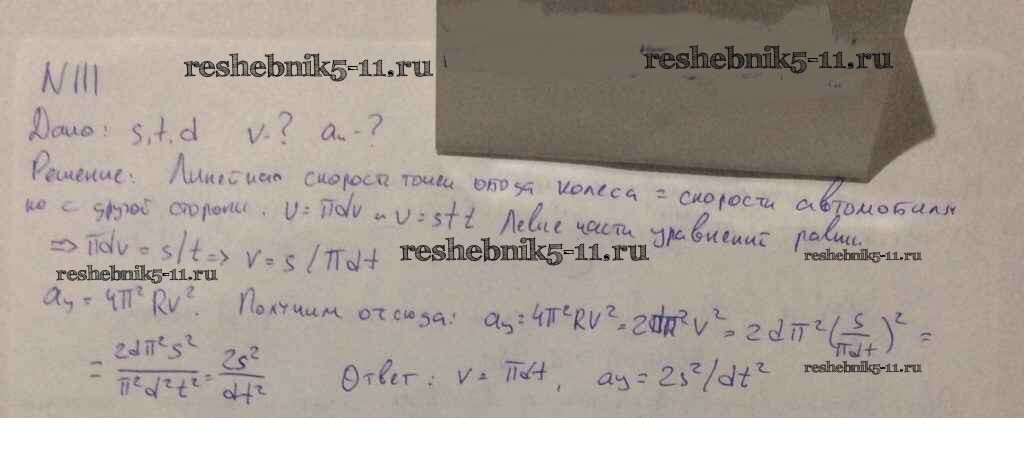 N 111
reshebnik5-11.ru
reshebnik5-11.ru
Дано: s, t, d v - ? aц - ?
Решение: Линейная скорость точки обода колеса = скорости автомобиля
но с другой стороны. v = πdν и v = s/t Левые части уравнений равны.
⇒ πdν = s/t ⇒ ν = s / πdt
reshebnik5-11.ru
reshebnik5-11.ru
aц = 4π² Rν². Получим отсюда: aц = 4π² Rν² = 2dπ² ν² = 2dπ² (s/πdt)² =
= 2dπ²s²/π²d²t² = 2s²/dt² Ответ: ν = πdt, aц = 2s²/dt²
reshebnik5-11.ru